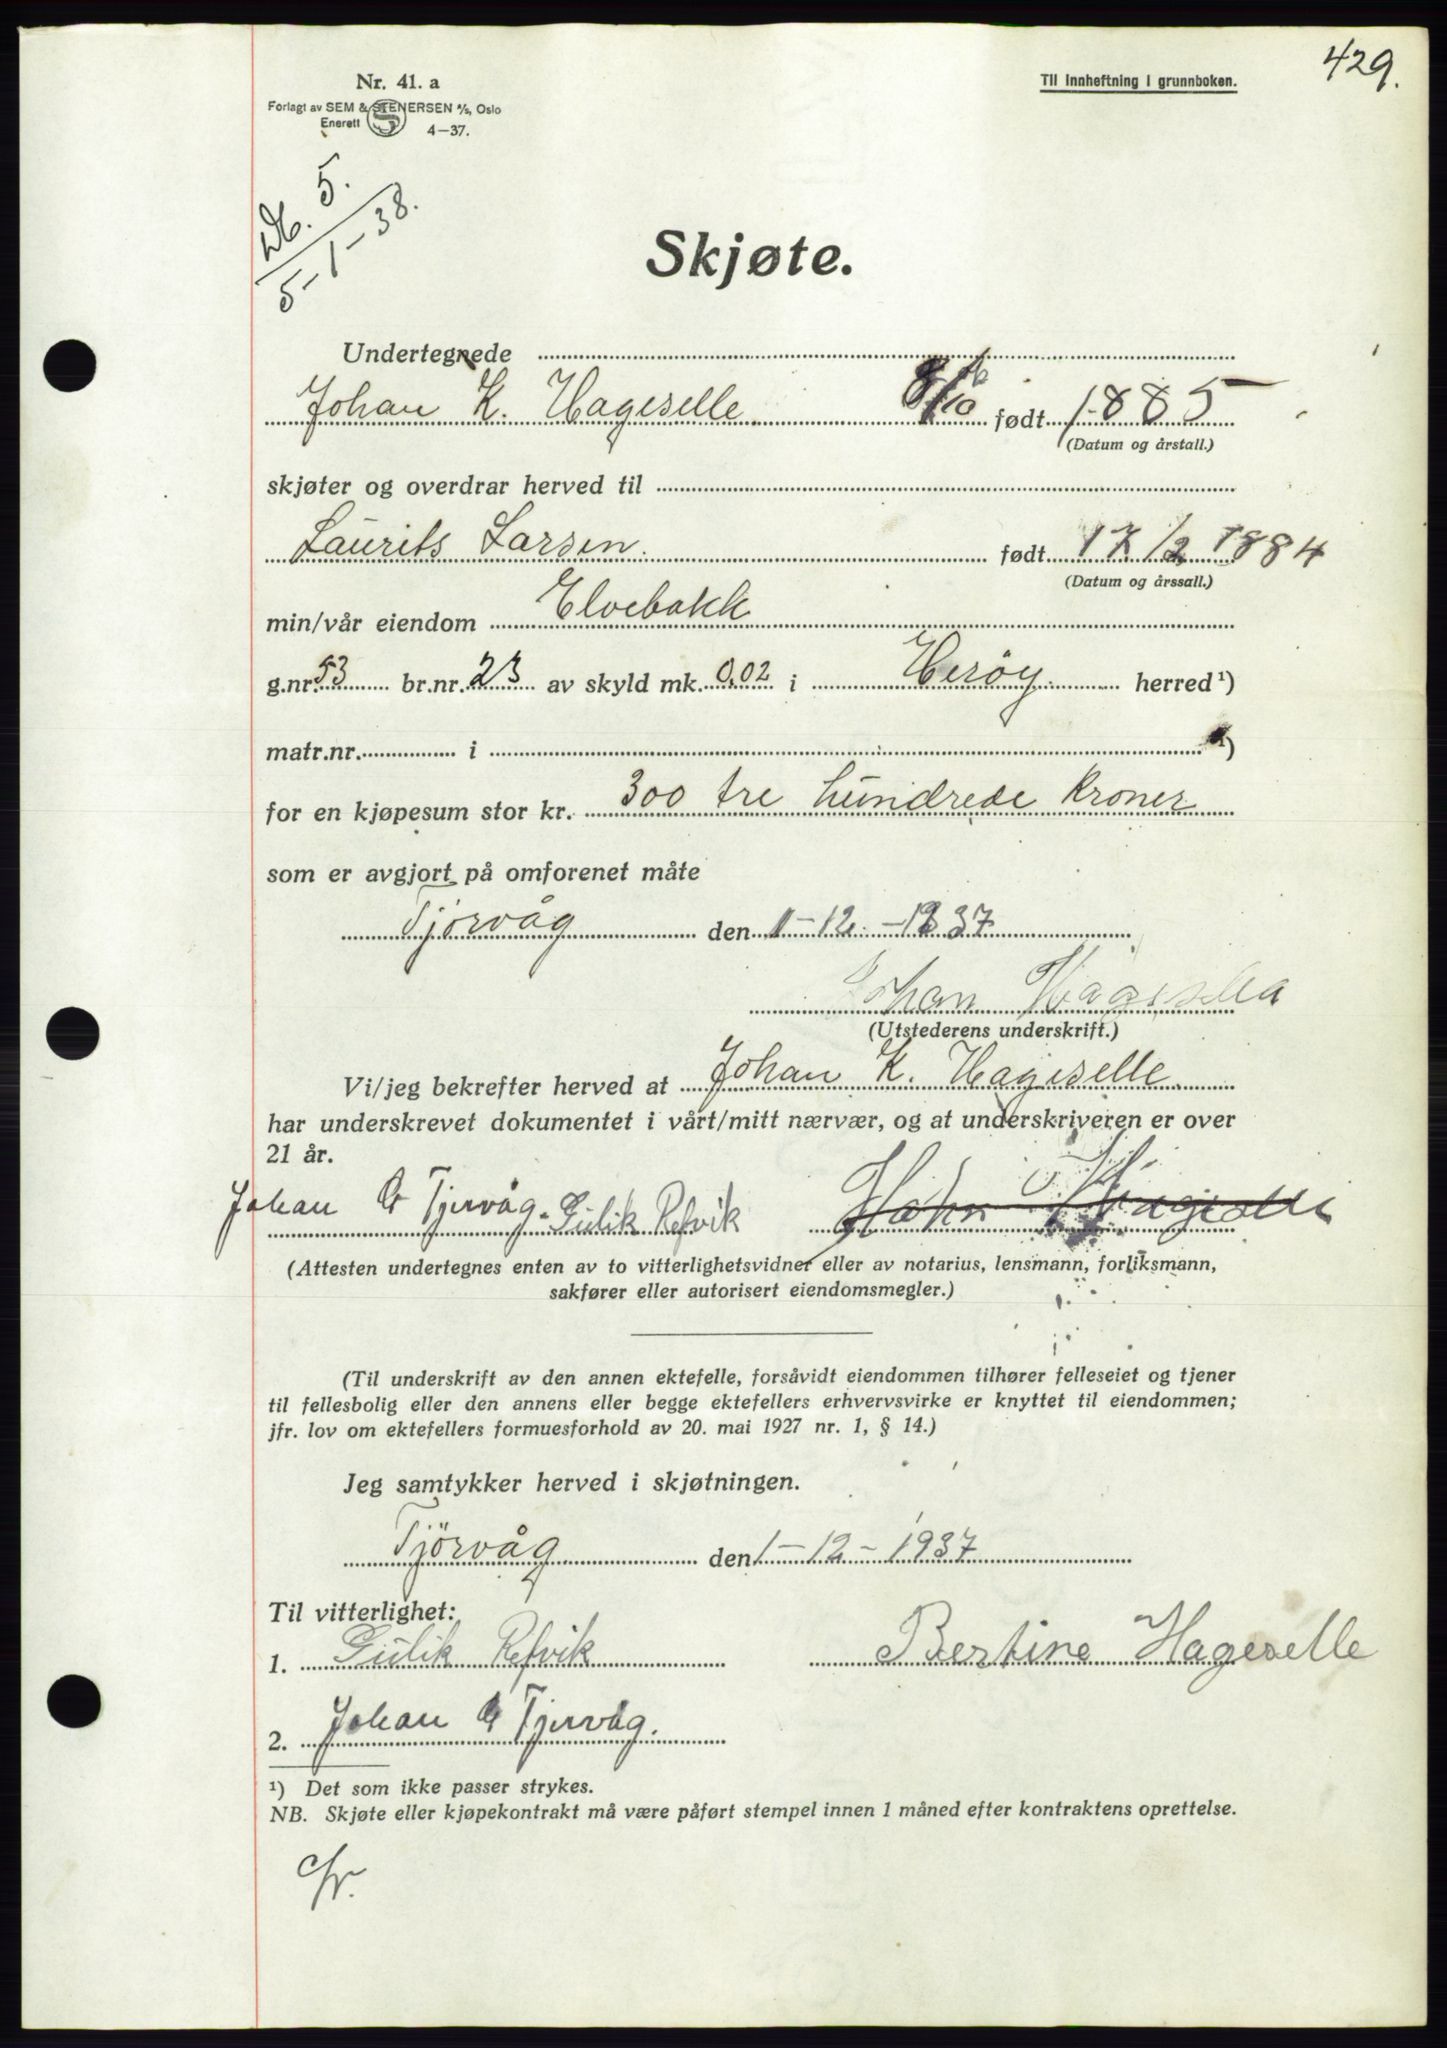 429.
Nr. 41. a
Til innheftning i grunnboken.
Forlagt av SEM & STENERSEN A/S, Oslo
Enerett
4—37.
Db. 5.
5-1-38.
Skjøte.
Undertegnede
Johan K. Hageselle 8/10 født 1885
(Datum og årstall.)
skjøter og overdrar herved til
Laurits Larsen. født 17/2 1884
(Datum og årssall.)
min/vår eiendom Elvebakk
g.nr. 53 br.nr. 23 av skyld mk. 0,02 i Herøy herred ¹)
matr.nr. i ¹)
for en kjøpesum stor kr. 300 tre hundrede Kroner
som er avgjort på omforenet måte
Tjörvåg den 1-12-1937
Johan Hageselle
(Utstederens underskrift.)
Vi/jeg bekrefter herved at Johan K. Hageselle
har underskrevet dokumentet i vårt/mitt nærvær, og at underskriveren er over
21 år.
Johan G Tjervåg. Gülik Refvik
(Attesten undertegnes enten av to vitterlighetsvidner eller av notarius, lensmann, forliksmann,
sakfører eller autorisert eiendomsmegler.)
(Til underskrift av den annen ektefelle, forsåvidt eiendommen tilhører felleseiet og tjener
til fellesbolig eller den annens eller begge ektefellers erhvervsvirke er knyttet til eiendommen;
jfr. lov om ektefellers formuesforhold av 20. mai 1927 nr. 1, § 14.)
Jeg samtykker herved i skjøtningen.
Tjörvåg den 1-12-1937
Til vitterlighet:
1. Gülik Refvik Bertine Hageselle
2. Johan G Tjervåg.
¹) Det som ikke passer strykes.
NB. Skjøte eller kjøpekontrakt må være påført stempel innen 1 måned efter kontraktens oprettelse.